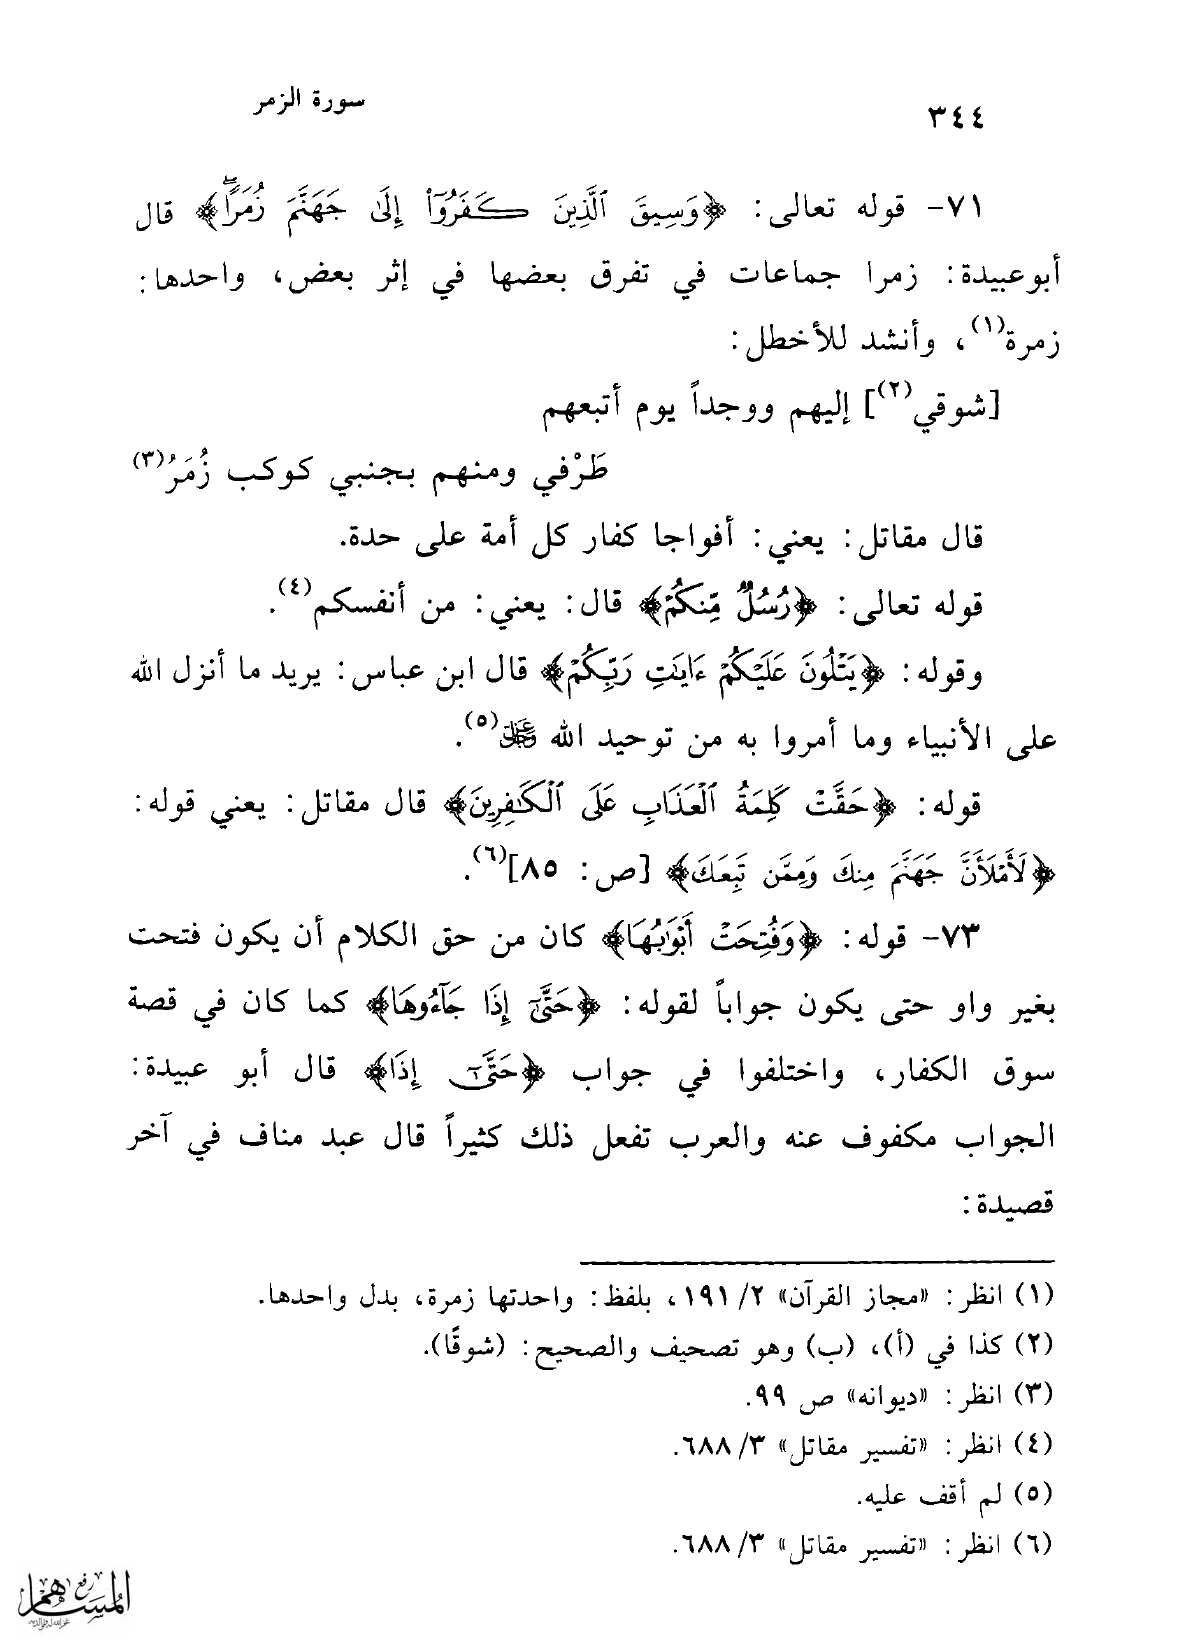 ٣٤٤
سورة الزمر
٧١- قوله تعالى: ﴿وَسِيقَ ٱلَّذِينَ كَفَرُوٓا۟ إِلَىٰ جَهَنَّمَ زُمَرًاۖ﴾ قال
أبوعبيدة: زمرا جماعات في تفرق بعضها في إثر بعض، واحدها:
زمرة(١)، وأنشد للأخطل:
[شوقي(٢)] إليهم ووجداً يوم أتبعهم
طَرْفي ومنهم بجنبي كوكب زُمَرُ(٣)
قال مقاتل: يعني: أفواجا كفار كل أمة على حدة.
قوله تعالى: ﴿رُسُلٌ مِّنكُمْ﴾ قال: يعني: من أنفسكم(٤).
وقوله: ﴿يَتْلُونَ عَلَيْكُمْ ءَايَٰتِ رَبِّكُمْ﴾ قال ابن عباس: يريد ما أنزل الله
على الأنبياء وما أمروا به من توحيد الله عز وجل(٥).
قوله: ﴿حَقَّتْ كَلِمَةُ ٱلْعَذَابِ عَلَى ٱلْكَٰفِرِينَ﴾ قال مقاتل: يعني قوله:
﴿لَأَمْلَأَنَّ جَهَنَّمَ مِنكَ وَمِمَّن تَبِعَكَ﴾ [ص: ٨٥](٦).
٧٣- قوله: ﴿وَفُتِحَتْ أَبْوَٰبُهَا﴾ كان من حق الكلام أن يكون فتحت
بغير واو حتى يكون جواباً لقوله: ﴿حَتَّىٰٓ إِذَا جَآءُوهَا﴾ كما كان في قصة
سوق الكفار، واختلفوا في جواب ﴿حَتَّىٰٓ إِذَا﴾ قال أبو عبيدة:
الجواب مكفوف عنه والعرب تفعل ذلك كثيراً قال عبد مناف في آخر
قصيدة:
(١) انظر: «مجاز القرآن» ٢/ ١٩١، بلفظ: واحدتها زمرة، بدل واحدها.
(٢) كذا في (أ)، (ب) وهو تصحيف والصحيح: (شوقًا).
(٣) انظر: «ديوانه» ص ٩٩.
(٤) انظر: «تفسير مقاتل» ٣/ ٦٨٨.
(٥) لم أقف عليه.
(٦) انظر: «تفسير مقاتل» ٣/ ٦٨٨.
رفع
المساهم